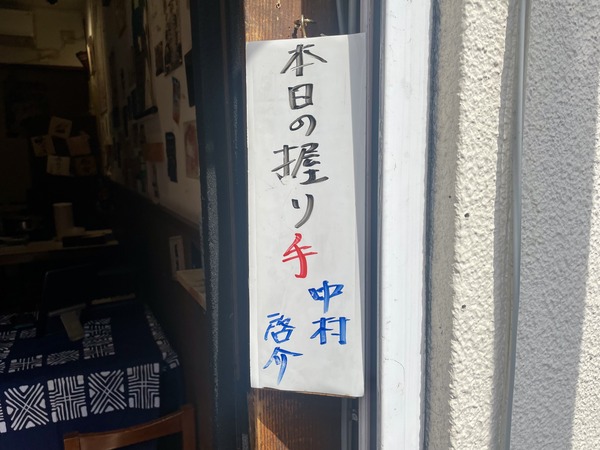 本日の握り手
中村
啓介